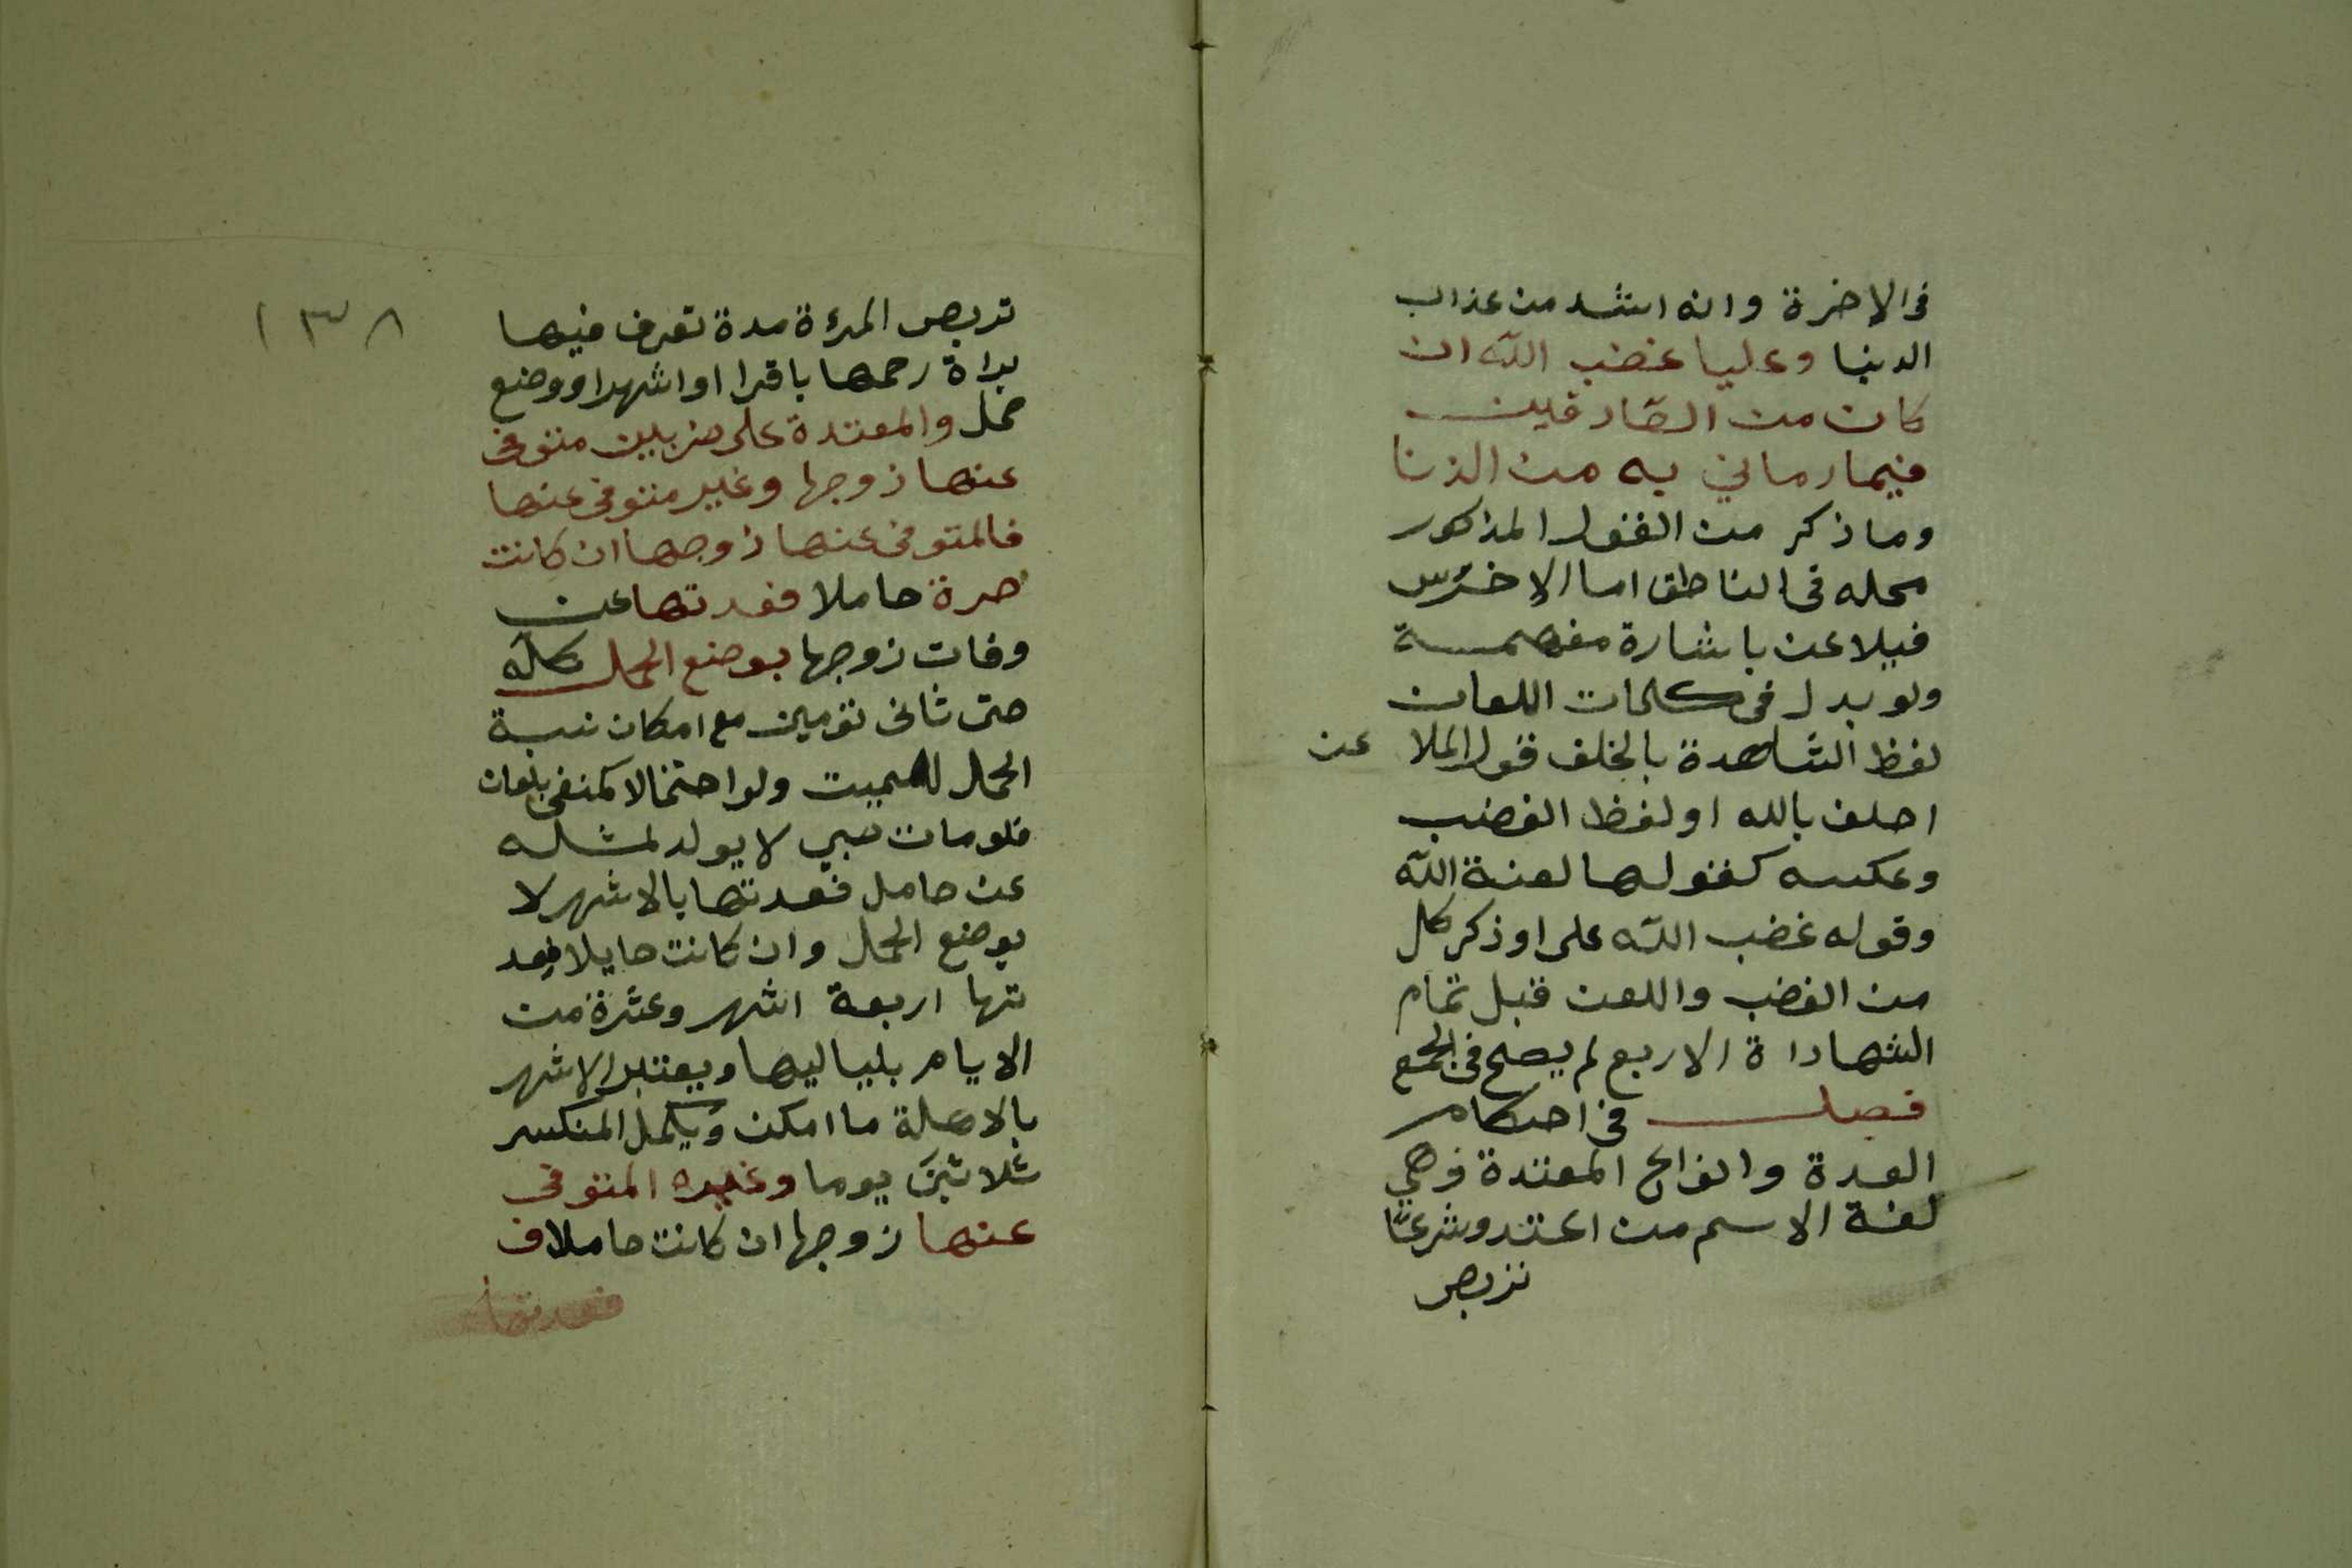 فى الاخرة وانه اشد من عذاب
الدنيا وعليا غضب الله ان
كان من الصادقين
فيما رماني به من الزنا
وما ذكر من القول المذكور
محله فى الناطق اما الاخرس
فيلاعن باشارة مفهمسة
ولو بدل فى كلمات اللعان
لفظ الشاهدة بالخلف قول الملا عن
احلف بالله او لفظ الغضب
وعكسه كقولها لعنة الله
وقوله غضب الله على او ذكر كل
من الغضب واللعن قبل تمام
الشهاداة الاربع لم يصح فى الجمع
فصل فى احكام
العدة وانواع المعتدة وهي
لغة الاسم من اعتد وشرعا
تربص
١٣٨
تربص المرءة مدة تعرف فيها
براة رحمها باقرا او اشهر او وضع
حمل والمعتدة على ضربين متوفى
عنها زوجها وغير متوفى عنها
فالمتوفى عنها زوجها ان كانت
حرة حاملا فعدتها عن
وفات زوجها بوضع الحمل كله
حتى ثانى تؤمين مع امكان نسبة
الحمل للميت ولو احتمالا كمنفى بلعان
فلو مات صبي لا يولد لمثله
عن حامل فعدتها بالاشهر لا
بوضع الحمل وان كانت حايلا فعد
تها اربعة اشهر وعشرة من
الايام بلياليها ويعتبر الاشهر
بالاهلة ما امكن ويكمل المنكسر
ثلاثين يوما وغيره المتوفى
عنها زوجها ان كانت حاملا ف
فعدتها